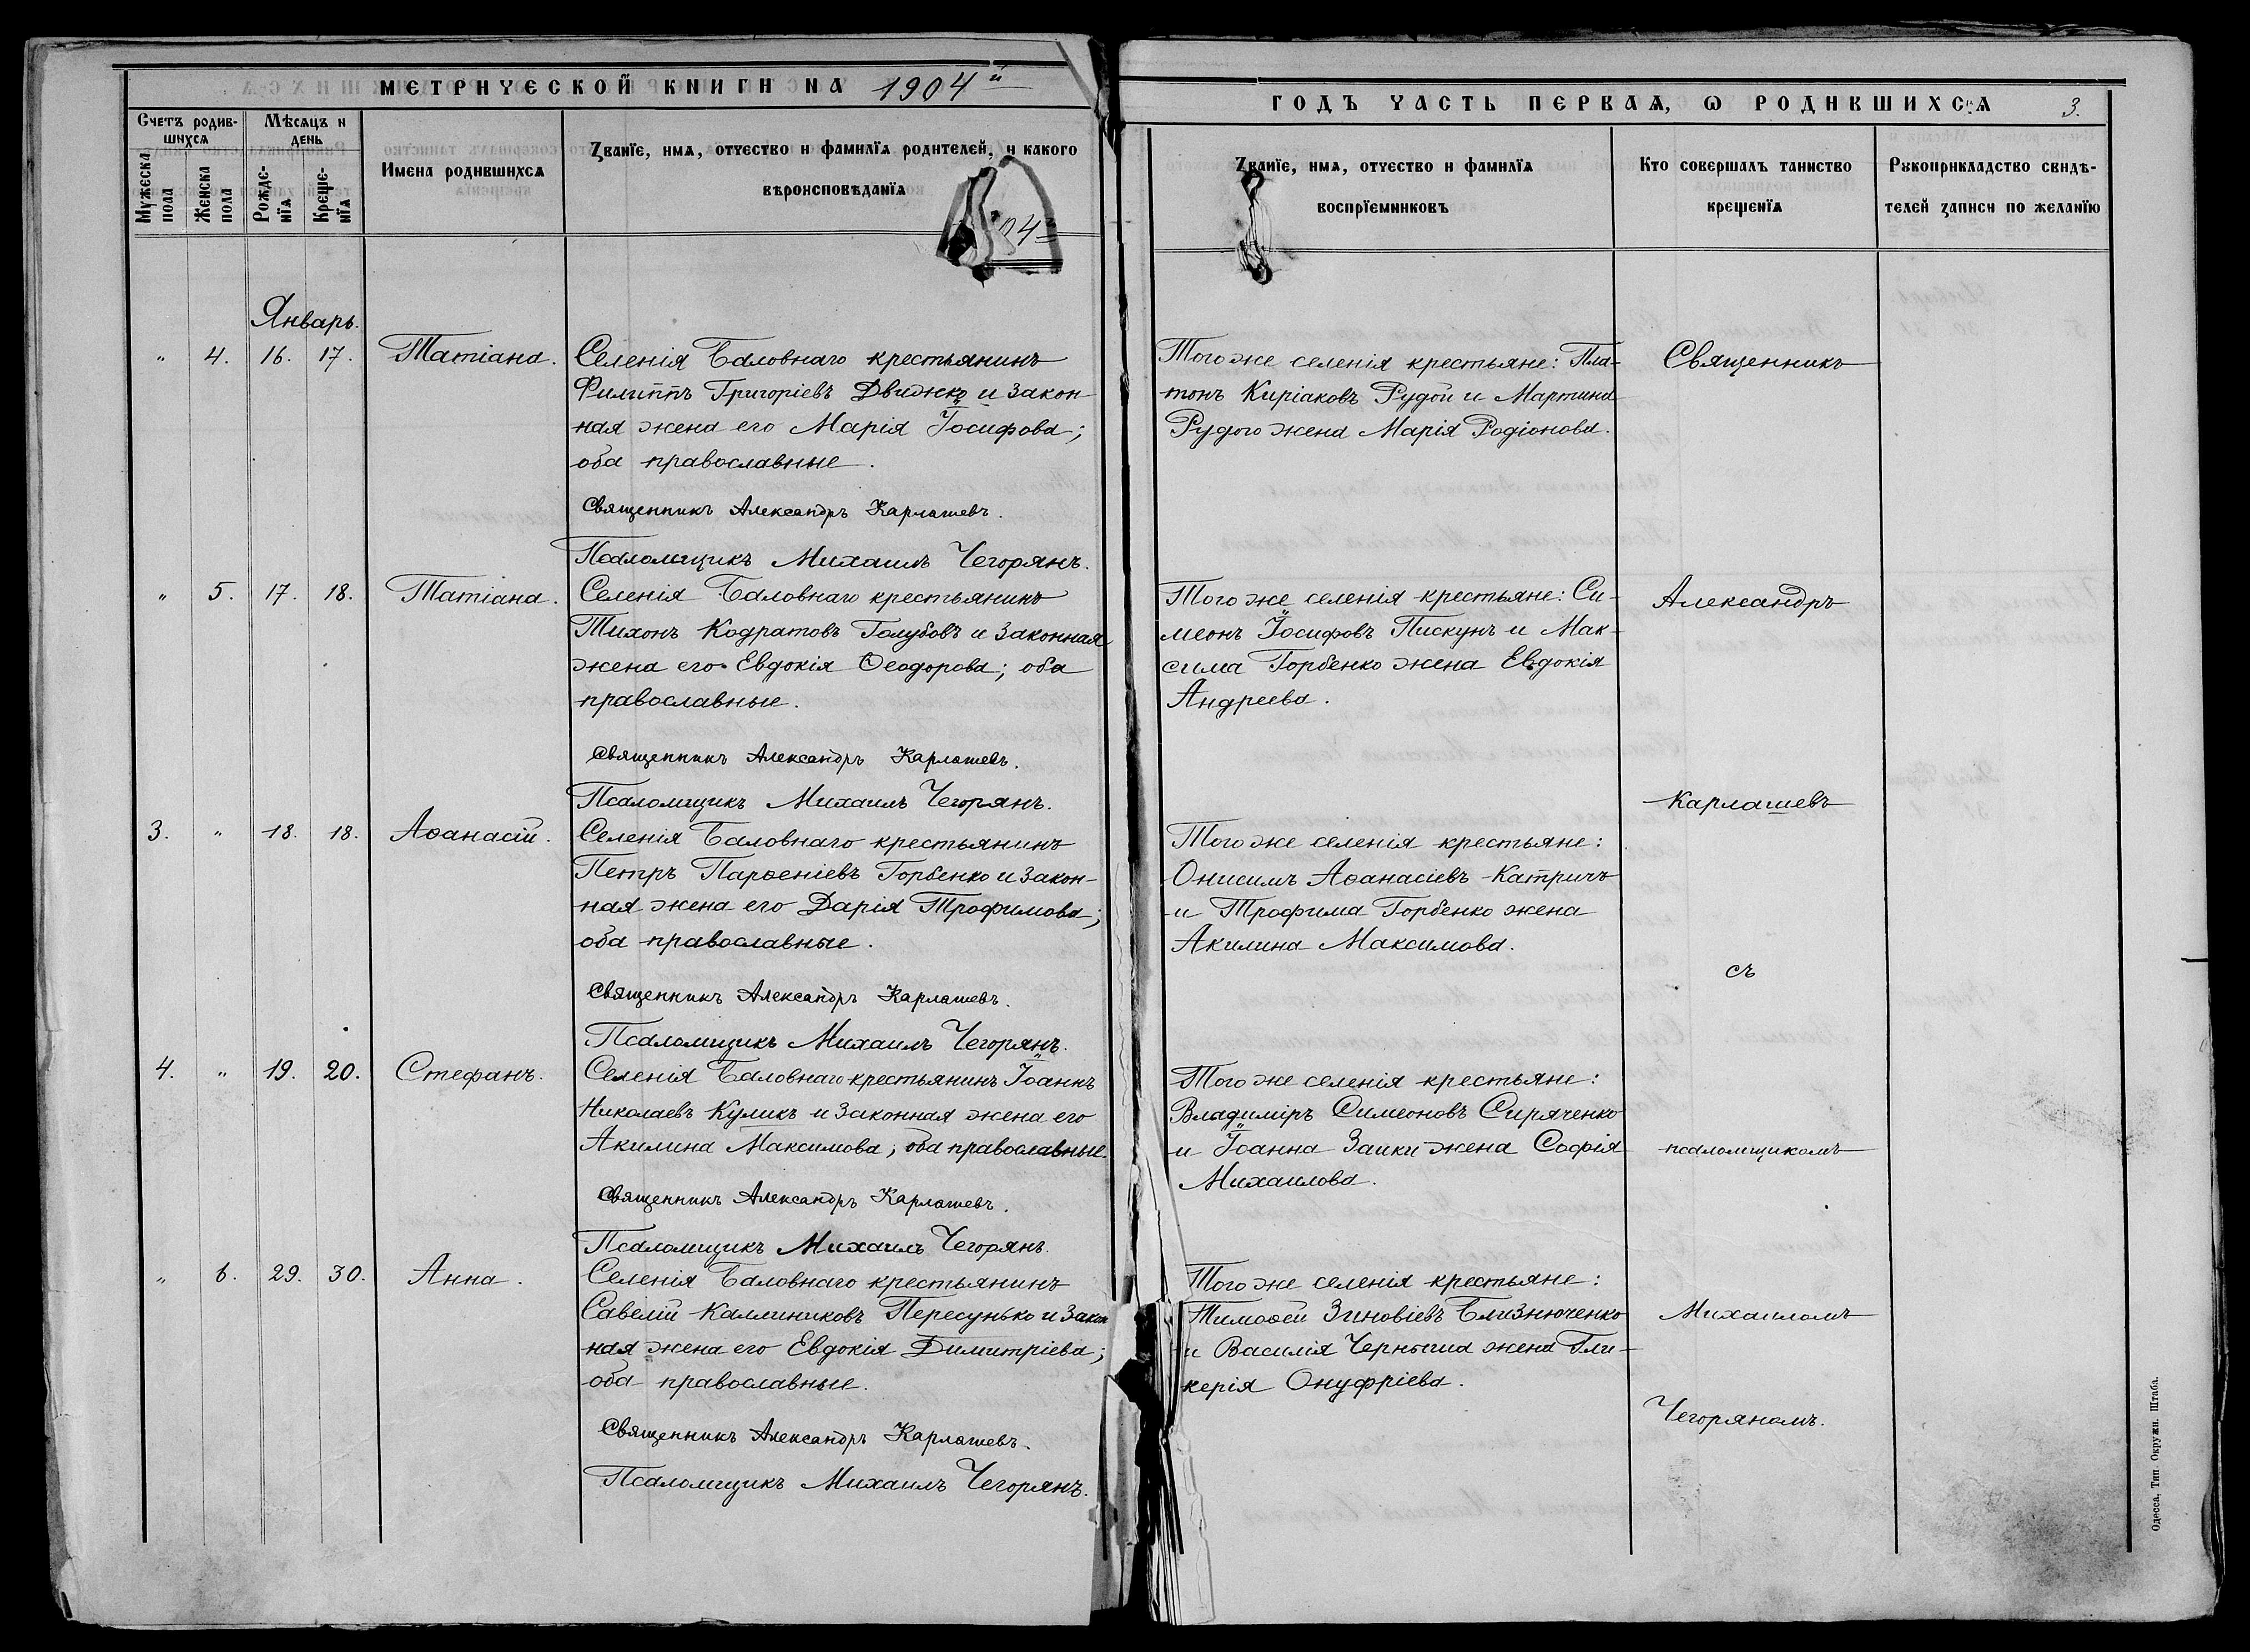 МЕТРИЧЕСКОЙ КНИГИ НА 1904й
Счетъ родив-
шихся
Мѣсяцъ и
день
Мужеска
пола
Женска
пола
Рожде-
нїя
Креще-
нїя
Имена родившихся
Званїе, имя, отчество и фамилїя родителей, и какого
вѣроисповѣданїя
Январь.
" 4. 16. 17. Татіана.
Селенія Баловнаго крестьянинъ
Филиппъ Григоріевъ Движко и закон-
ная жена его Марія Іосифова;
оба православные.
Священникъ Александръ Карлашевъ.
Псаломщикъ Михаилъ Чегорянъ.
" 5. 17. 18. Татіана.
Селенія Баловнаго крестьянинъ
Тихонъ Кодратовъ Голубовъ и законная
жена его Евдокія Ѳеодорова; оба
православные.
Священникъ Александръ Карлашевъ.
Псаломщикъ Михаилъ Чегорянъ.
3. " 18. 18. Аѳанасій.
Селенія Баловнаго крестьянинъ
Петръ Парѳеніевъ Горбенко и закон-
ная жена его Дарія Трофимова;
оба православные.
Священникъ Александръ Карлашевъ.
Псаломщикъ Михаилъ Чегорянъ.
4. " 19. 20. Стефанъ.
Селенія Баловнаго крестьянинъ Іоаннъ
Николаевъ Куликъ и законная жена его
Акилина Максимова; оба православные.
Священникъ Александръ Карлашевъ.
Псаломщикъ Михаилъ Чегорянъ.
" 6. 29. 30. Анна.
Селенія Баловнаго крестьянинъ
Савелій Каллиниковъ Пересунько и закон
ная жена его Евдокія Димитріева;
оба православные.
Священникъ Александръ Карлашевъ.
Псаломщикъ Михаилъ Чегорянъ.
ГОДЪ ЧАСТЬ ПЕРВАЯ, Ѡ РОДИВШИХСЯ 3.
Званїе, имя, отчество и фамилїя
воспрїемниковъ
Кто совершалъ таинство
крещенїя
Рукоприкладство свидѣ-
телей записи по желанїю
Того же селенія крестьяне: Пла-
тонъ Киріаковъ Рудой и Мартина
Рудого жена Марія Родіонова.
Того же селенія крестьяне: Си-
меонъ Іосифовъ Пискунъ и Мак-
сима Горбенко жена Евдокія
Андреева.
Того же селенія крестьяне:
Онисимъ Аѳанасіевъ Катричъ
и Трофима Горбенко жена
Акилина Максимова.
Того же селенія крестьяне:
Владиміръ Симеоновъ Сиряченко
и Іоанна Заики жена Софія
Михаилова.
Того же селенія крестьяне:
Тимоѳей Зиновіевъ Близнюченко
и Василія Черныша жена Гли-
керія Онуфріева.
Священникъ
Александръ
Карлашевъ
съ
псаломщикомъ
Михаиломъ
Чегоряномъ.
Одесса, Тип. Окружн. Штаба.